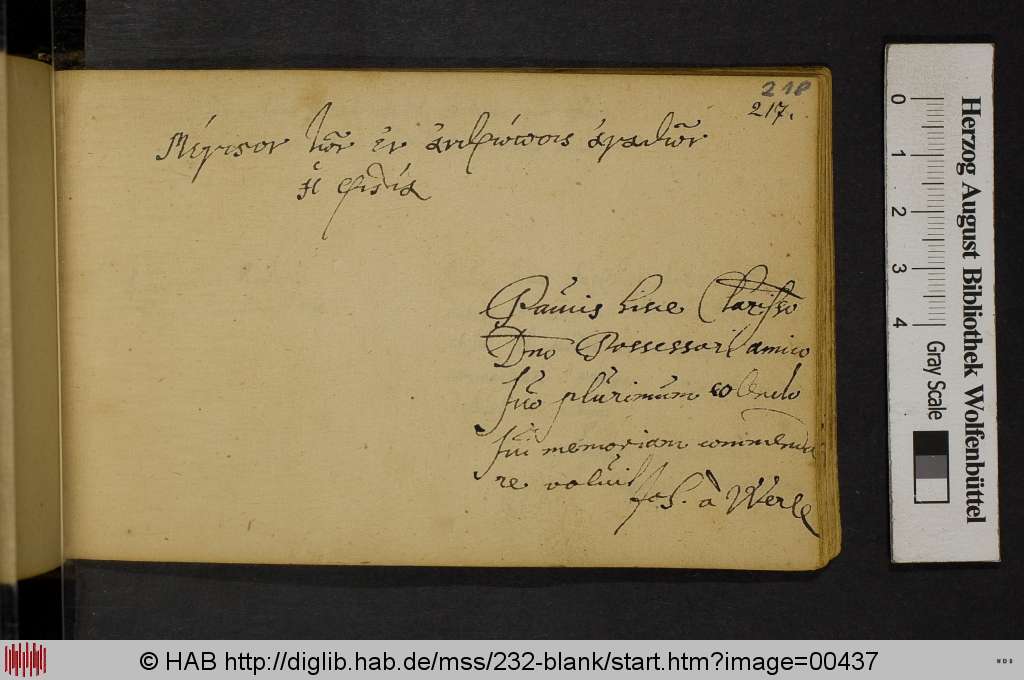 218
217.
Μέγιστον τῶν ἐν ἀνθρώποις ἀγαθῶν
ἡ φιλία
Paucis hisce Clarisso
Dno Possessori amico
suo plurimum colendo
sui memoriam commenda
re voluit
Joh. à Werle
Herzog August Bibliothek Wolfenbüttel
0
1
2
3
4
Gray Scale
© HAB http://diglib.hab.de/mss/232-blank/start.htm?image=00437